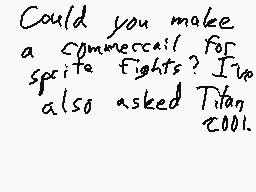 Could you make
a commercail for
sprite fights? I've
also asked Titan
2001.